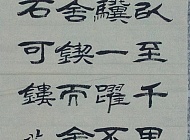 以至千里
驥一躍不
舍鍥而舍
石可鏤